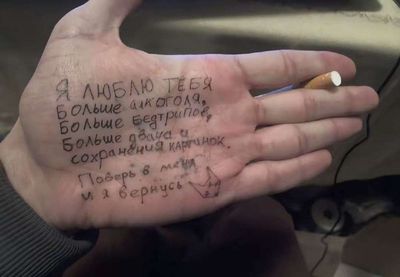 Я ЛЮБЛЮ ТЕБЯ
Больше алкоголя,
Больше Бедтрипов,
Больше двача и
сохранения картинок.
Поверь в меня
и я вернусь